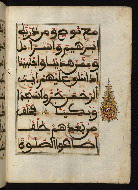 مع نوح ومن ذرية
ابرهيم واسرءيل
وممن هدينا واجتبينا
اذا تتلى عليهم ايت
الرحمن خروا سجدا
وبكيا فخلف
من بعدهم خلف
اضاعوا الصلوة